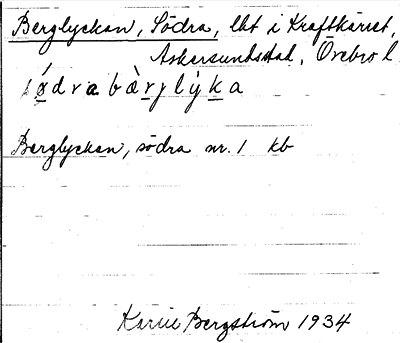 Berglyckan, Södra, lht i Kraftkärret,
Askersunds stad, Örebro l
sødrabàrjlyka
Berglyckan, södra nr. 1 kb
Karin Bergström 1934